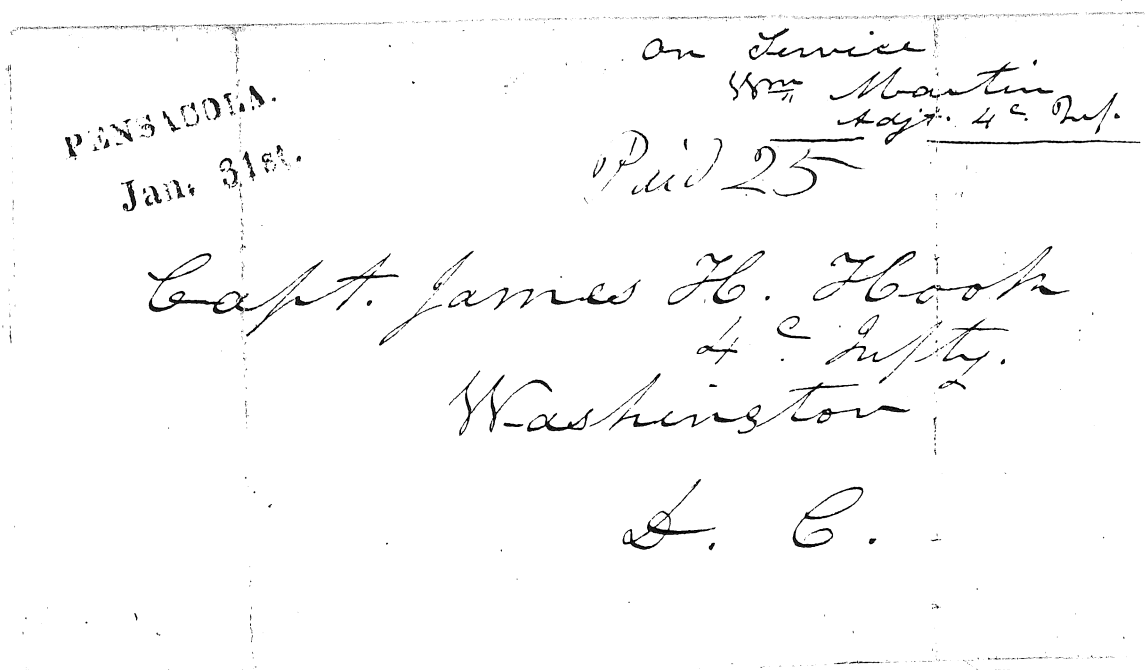 PENSACOLA.
Jan. 31st.
on Service
Wm Martin
Adjt. 4c. Inf.
Paid 25
Capt. James H. Hook
4c. Infty.
Washington
D. C.